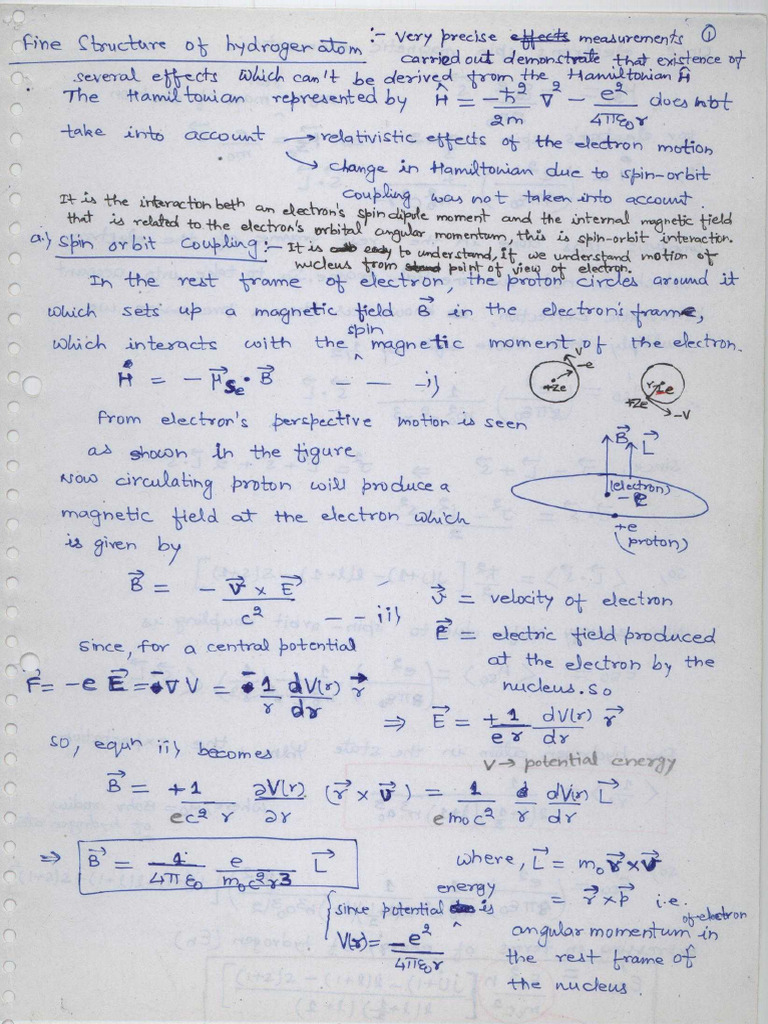 ①
Fine Structure of hydrogen atom :- very precise effects measurements
carried out demonstrate that existence of
several effects which can't be derived from the Hamiltonian Ĥ
The Hamiltonian represented by Ĥ = -ħ²/2m ∇² - e²/4πε₀r does not
take into account → relativistic effects of the electron motion
↘ change in Hamiltonian due to spin-orbit
coupling was not taken into account.
It is the interaction beth an electron's spin dipole moment and the internal magnetic field
that is related to the electron's orbital angular momentum, this is spin-orbit interaction.
a.) spin orbit coupling :- It is easy to understand, if we understand motion of
nucleus from point of view of electron.
In the rest frame of electron, the proton circles around it
which sets up a magnetic field B⃗ in the electron's frame,
which interacts with the spin magnetic moment of the electron.
Ĥ = - μ⃗se · B⃗ - - - i)
v
-e
+ze
r
-e
+ze
-v
from electron's perspective motion is seen
as shown in the figure
B⃗ L⃗
(electron)
-e
+e
(proton)
Now circulating proton will produce a
magnetic field at the electron which
is given by
B⃗ = - v⃗ × E⃗ / c² - - ii)
v⃗ = velocity of electron
E⃗ = electric field produced
at the electron by the
nucleus. so
since, for a central potential
F⃗ = -e E⃗ = -∇V = -1/r dV(r)/dr r⃗
⇒ E⃗ = +1/er dV(r)/dr r⃗
V → potential energy
so, equn ii) becomes
B⃗ = +1/ec²r ∂V(r)/∂r (r⃗ × v⃗) = 1/em₀c² 1/r dV(r)/dr L⃗
⇒ B⃗ = 1/4πε₀ e/m₀c²r³ L⃗
where, L⃗ = m₀ r⃗ × v⃗
= r⃗ × p⃗ i.e.
angular momentum of electron in
the rest frame of
the nucleus.
{since potential energy is
V(r) = -e²/4πε₀r